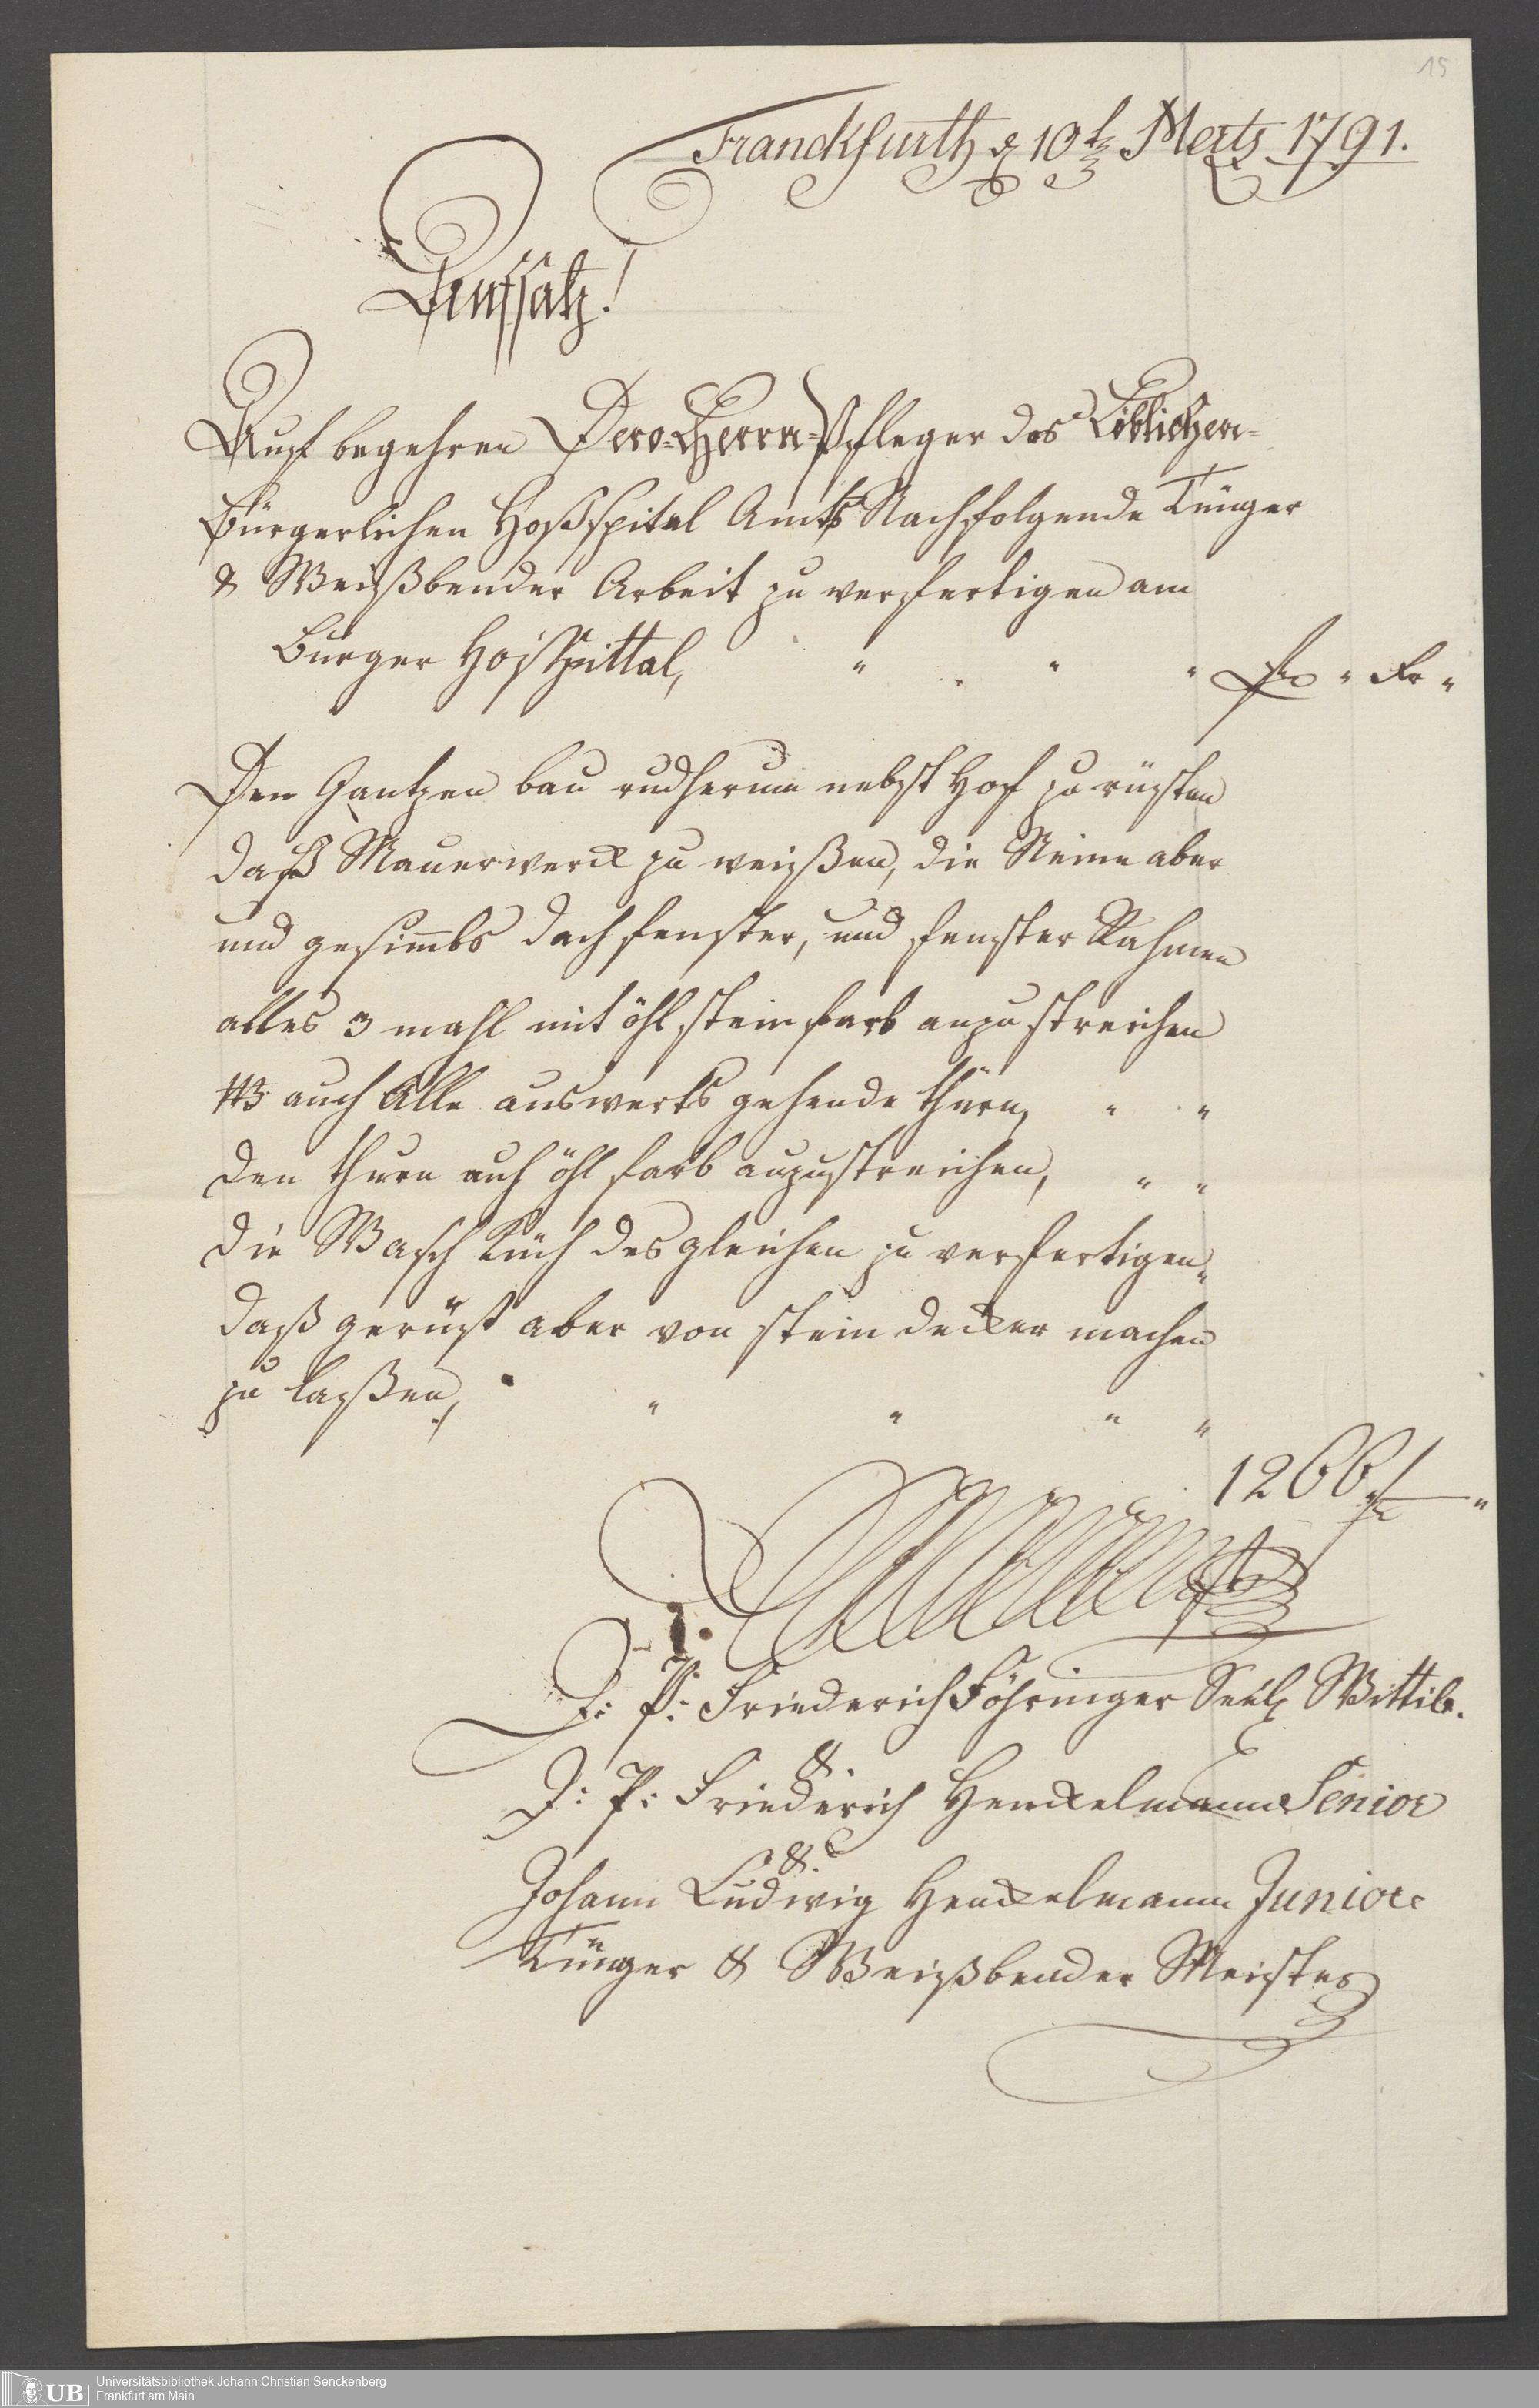 15
Franckfurth d 10t Mertz 1791.
Auffsatz!
Auf begehren Dero-Herrn-Pfleger des Löblichen-
Bürgerlichen Hoßspital Amts Nachfolgende Tünger
& Weißbender Arbeit zu verfertigen am
Burger Hosspittal, " " " fl " xr "
Den Gantzen bau rudherum nebst Hof zu rüsten
daß Mauerwerck zu weißen, die Steine aber
und gesimbs dach fenster, und fenster Rahmen
alles 3 mahl mit öhl stein farb anzustreichen
auch Alle auswerts gehende thüren, " "
den thurn auch öhl farb anzustreichen, " "
die Wasch Küch desgleichen zu verfertigen "
daß gerüst aber von stein decker machen
zu laßen, " " " "
1266 fl — "
J: P: Friederich Föhringer Seel Wittib.
&.
J: P: Friederich Henckelmann Senior
&.
Johann Ludwig Henckelmann Junior
Tünger & Weißbender Meister
UB
Universitätsbibliothek Johann Christian Senckenberg
Frankfurt am Main